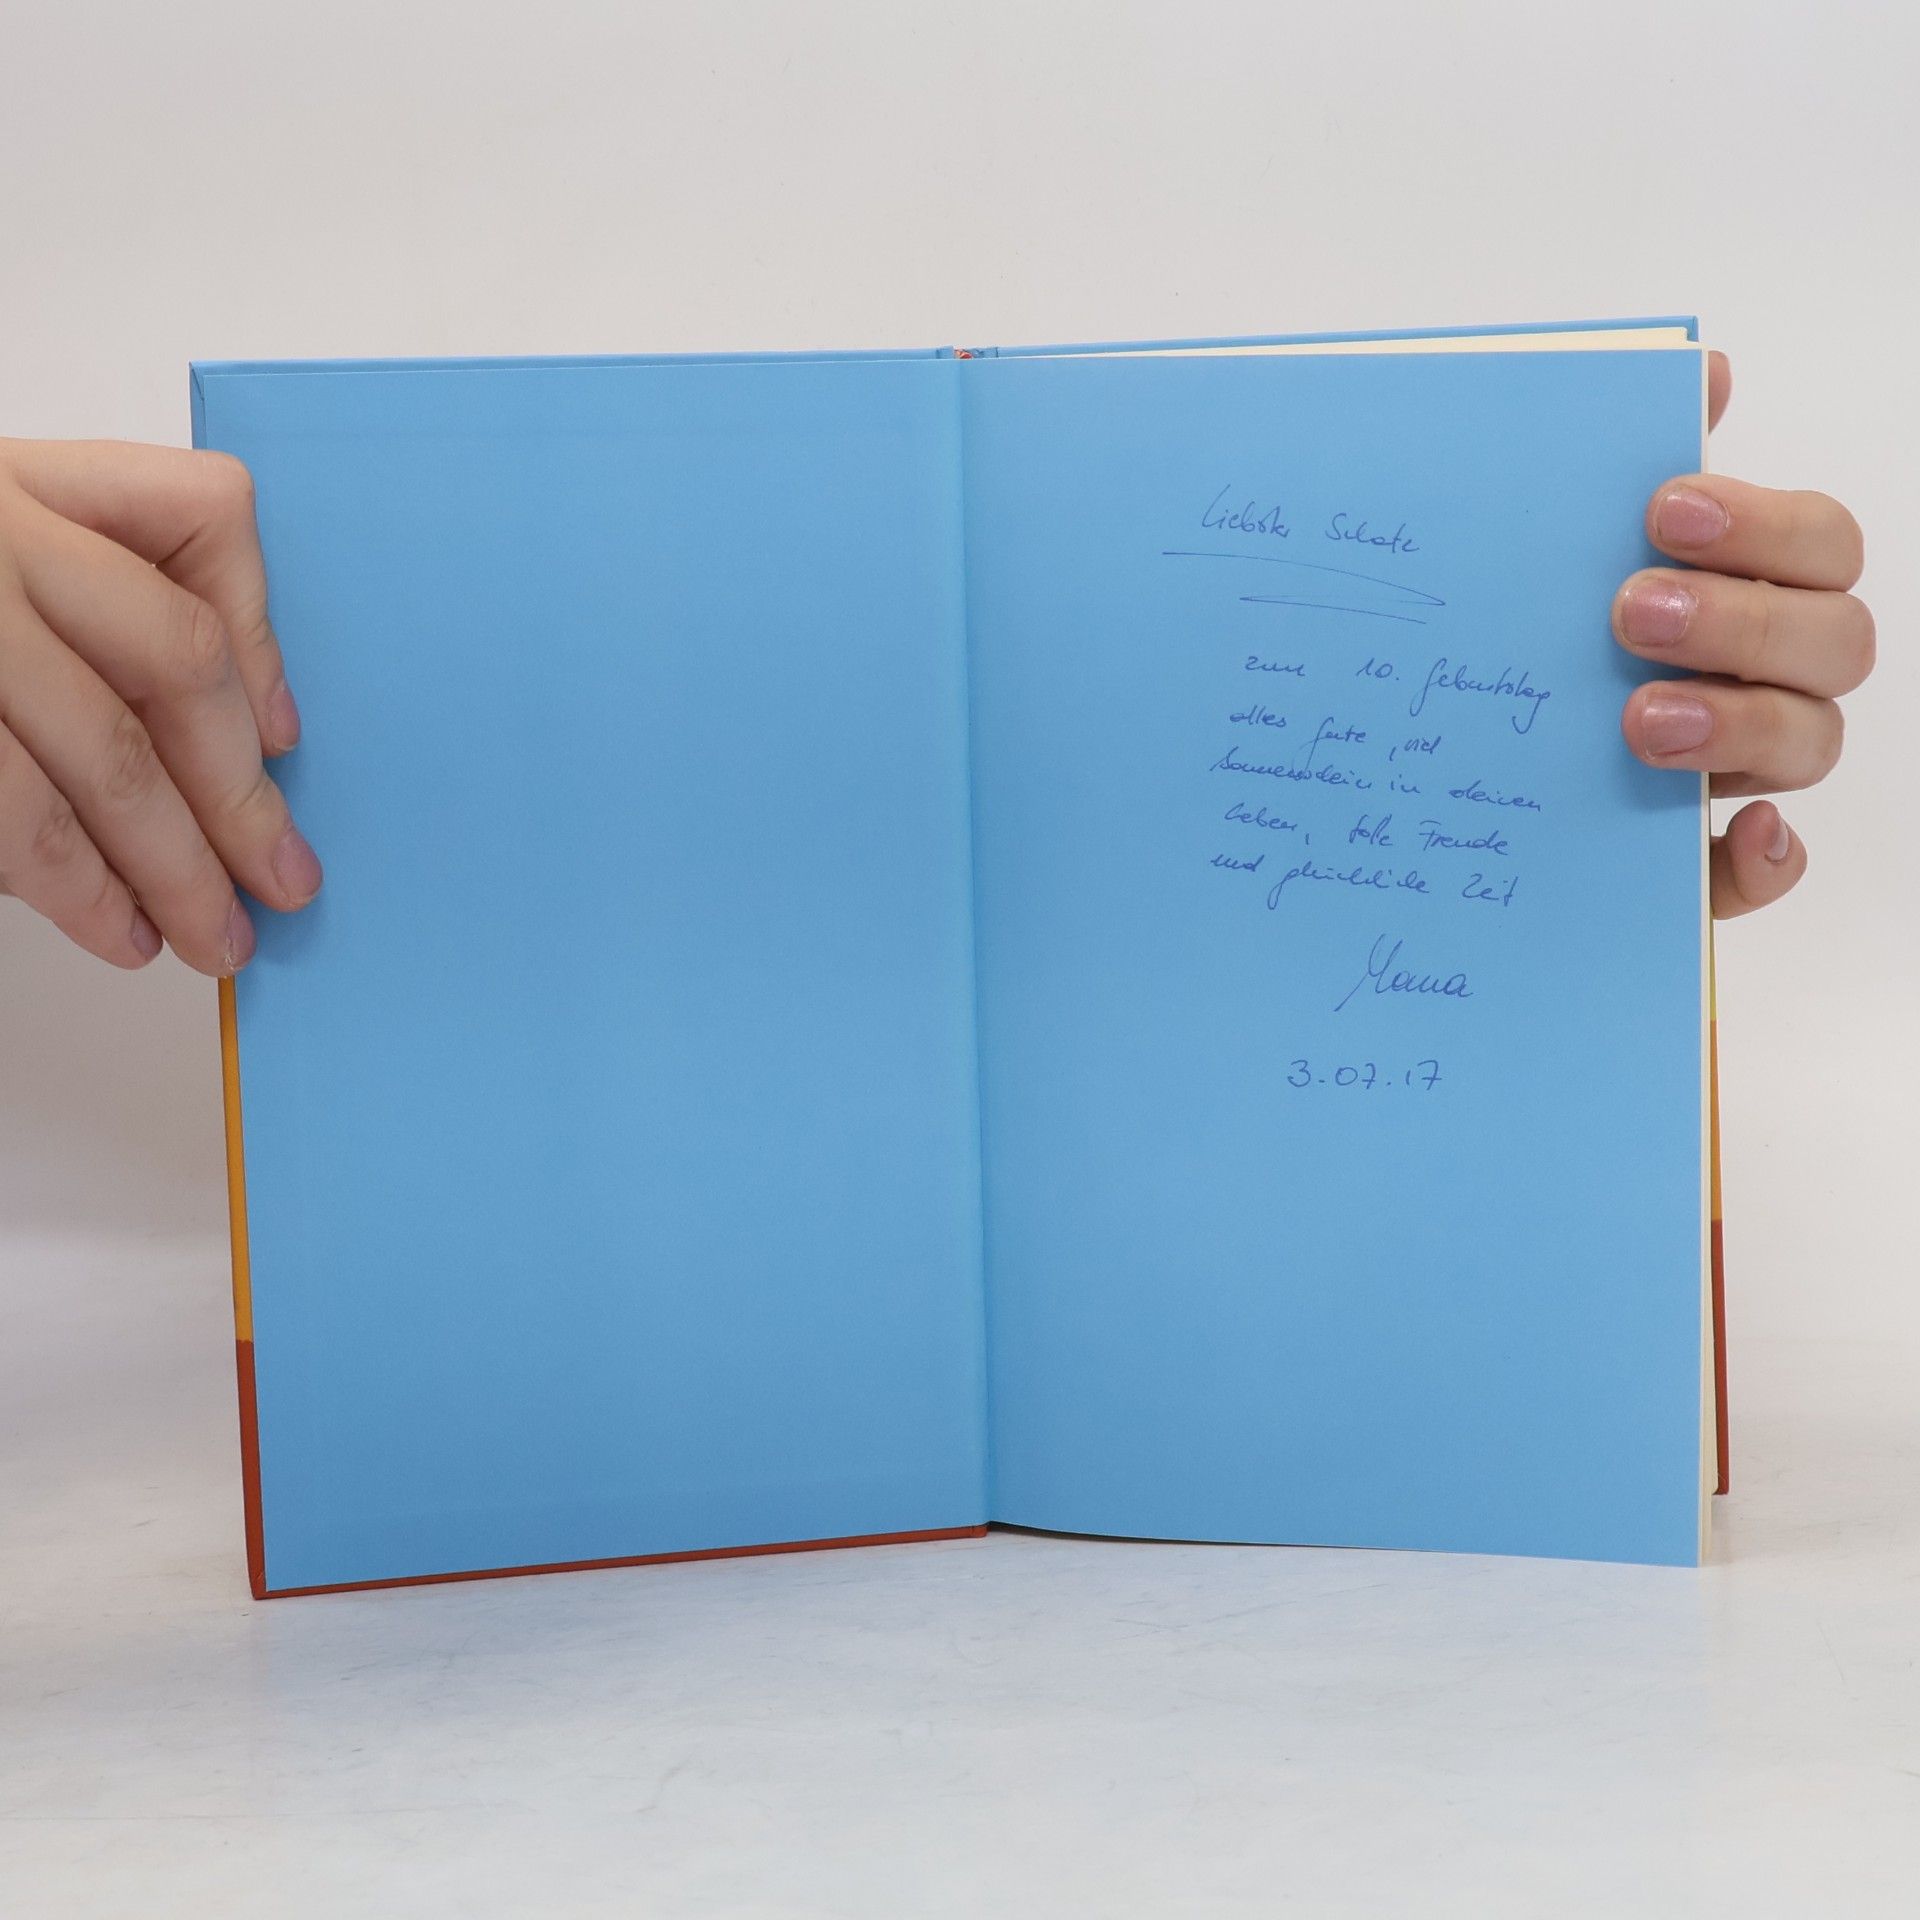 Liebster Schatz
zum 10. Geburtstag
alles gute, viel
Sonnenschein in deinen
Leben, tolle Freude
und glückliche Zeit
Mama
3.07.17